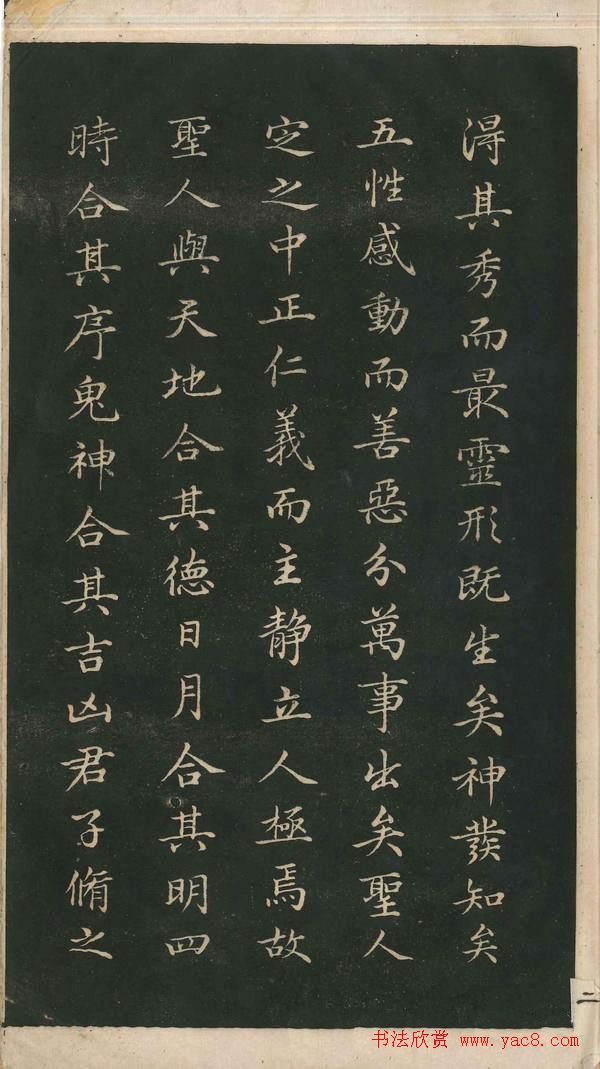 得其秀而最靈形既生矣神發知矣
五性感動而善惡分萬事出矣聖人
定之中正仁義而主静立人極焉故
聖人與天地合其德日月合其明四
時合其序鬼神合其吉凶君子脩之
二
书法欣赏 www.yac8.com